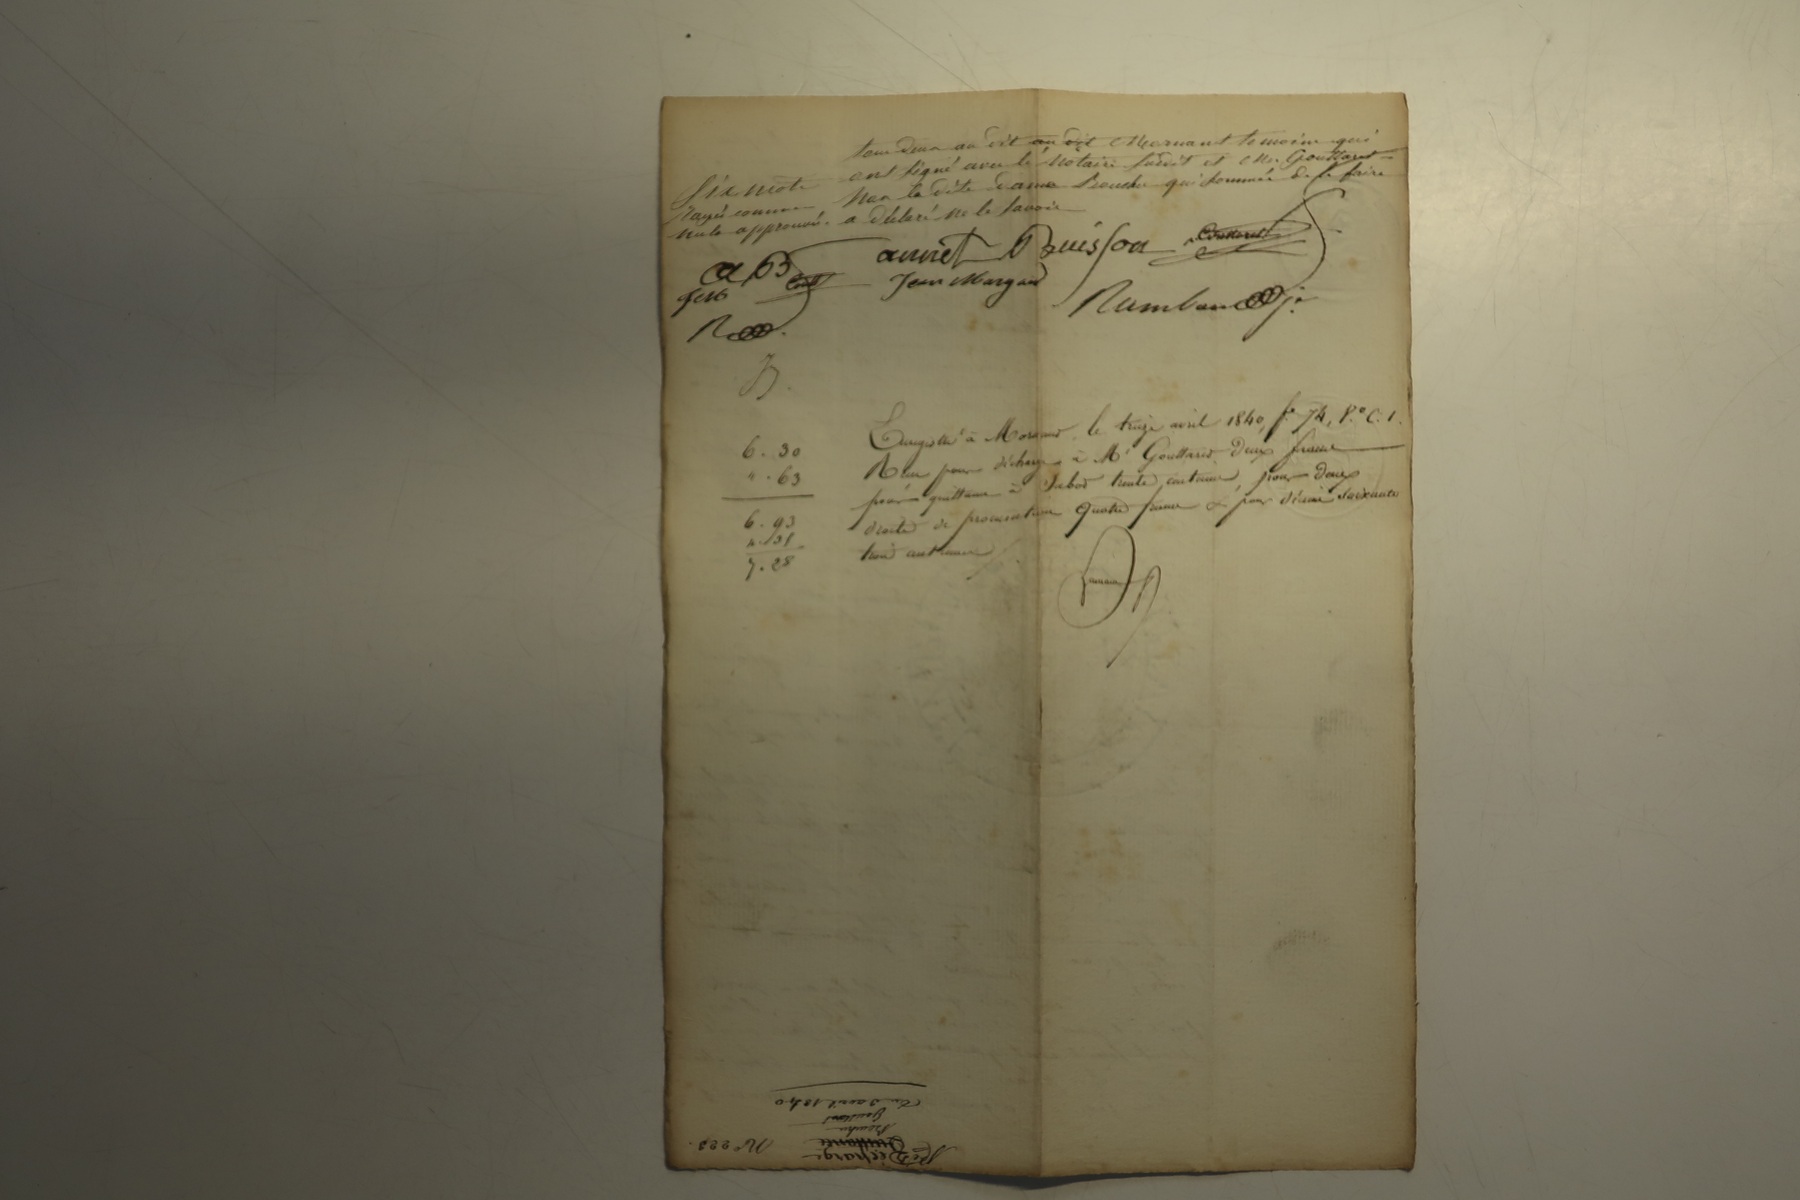 tous deux au dit au dit Mornant témoins qui
ont signé avec le Notaire susdit et Mr. Gouttaret
Non la dite dame qui sommée de le faire
a déclaré ne le savoir
Six mots
rayés comme
nuls approuvés.
annet Buisson
Jean Margand
AB
Rambaud je.
6. 30
". 63
6. 93
7. 28
Enregistré à Mornant le treize avril 1840, fo 74, Ro C. 1.
Reçu pour décharge à Mr deux francs
pour quittance à trente centimes, pour deux
droits de procuration quatre francs & pour décime soixante
trois centimes
No 223.
Décharge
Quittance
Du 3 avril 1840